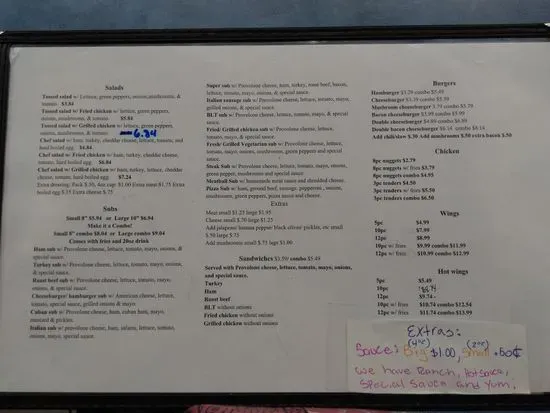 Salads
Tossed salad w/ Lettuce, green peppers, onions, mushrooms, &
tomato $3.84
Tossed salad w/ Fried chicken w/ lettuce, green peppers,
onions, mushrooms, & tomato $5.84
Tossed salad w/ Grilled chicken w/ lettuce, green peppers,
onions, mushrooms, & tomato 6.34
Chef salad w/ ham, turkey, cheddar cheese, lettuce, tomato, and
hard boiled egg $4.84
Chef salad w/ Fried chicken w/ ham, turkey, cheddar cheese,
tomato, hard boiled egg $6.84
Chef salad w/ Grilled chicken w/ ham, turkey, lettuce, cheddar
cheese, tomato, hard boiled egg $7.24
Extra dressing: Pack $.50, 4oz cup $1.00 Extra meat $1.75 Extra
boiled egg $.75 Extra cheese $.75
Subs
Small 8" $5.94 or Large 10" $6.94
Make it a Combo!
Small 8" combo $8.04 or Large combo $9.04
Comes with fries and 20oz drink
Ham sub w/ Provolone cheese, lettuce, tomato, mayo, onions, &
special sauce.
Turkey sub w/ Provolone cheese, lettuce, tomato, mayo, onions,
& special sauce.
Roast beef sub w/ Provolone cheese, lettuce, tomato, mayo,
onions, & special sauce.
Cheeseburger/ hamburger sub w/ American cheese, lettuce,
tomato, special sauce, grilled onions & mayo.
Cuban sub w/ Provolone cheese, ham, cuban ham, mayo,
mustard & pickles.
Italian sub w/ provolone cheese, ham, salami, lettuce, tomato,
onions, mayo, special sauce.
Super sub w/ Provolone cheese, ham, turkey, roast beef, bacon,
lettuce, tomato, mayo, onions, & special sauce.
Italian sausage sub w/ Provolone cheese, lettuce, tomato, mayo,
grilled onions, & special sauce.
BLT sub w/ Provolone cheese, lettuce, tomato, mayo, onions, &
special sauce.
Fried/ Grilled chicken sub w/ Provolone cheese, lettuce,
tomato, mayo, onions, & special sauce.
Fresh/ Grilled Vegetarian sub w/ Provolone cheese, lettuce,
tomato, mayo, onions, mushrooms, green peppers and special
sauce.
Steak Sub w/ Provolone cheese, lettuce, tomato, mayo, onions,
mushrooms, green peppers & special sauce.
Meatball Sub w/ homemade metal sauce and shredded cheese.
Pizza Sub w/ ham, ground beef, sausage, pepperoni, onions,
mushrooms, green peppers, pizza sauce and cheese.
Extras
Meat small $1.25 large $1.95
Cheese small $.70 large $1.25
Add jalapeno/ banana pepper/ black olives/ pickles, etc small
$.50 large $.75
Add mushrooms small $.75 large $1.00
Sandwiches $3.59/ combo $5.49
Served with Provolone cheese, lettuce, tomato, mayo, onions,
and special sauce.
Turkey
Ham
Roast beef
BLT without onions
Fried chicken without onions
Grilled chicken without onions
Burgers
Hamburger $3.29 combo $5.49
Cheeseburger $3.39 combo $5.59
Mushroom cheeseburger 3.79 combo $5.79
Bacon cheeseburger $3.99 combo $5.99
Double cheeseburger $4.89 combo $6.89
Double bacon cheeseburger $6.14 combo $8.14
Add chili/slaw $.30 Add mushrooms $.50 extra bacon $.50
Chicken
8pc nuggets $2.79
8pc nuggets w/ fries $3.79
8pc nuggets combo $4.95
3pc tenders $4.50
3pc tenders w/ fries $5.50
3pc tenders combo $6.50
Wings
5pc $4.99
10pc $7.99
12pc $8.99
10pc w/ fries $9.99 combo $11.99
12pc w/ fries $10.99 combo $12.99
Hot wings
5pc $5.49
10pc $8.74
12pc $9.74
10pc w/ fries $10.74 combo $12.54
12pc w/ fries $11.74 combo $13.99
Extras:
(4oz) (2oz)
Sauce: Big $1.00, Small .50¢
We have Ranch, Hot Sauce,
Special Sauce and Yum.